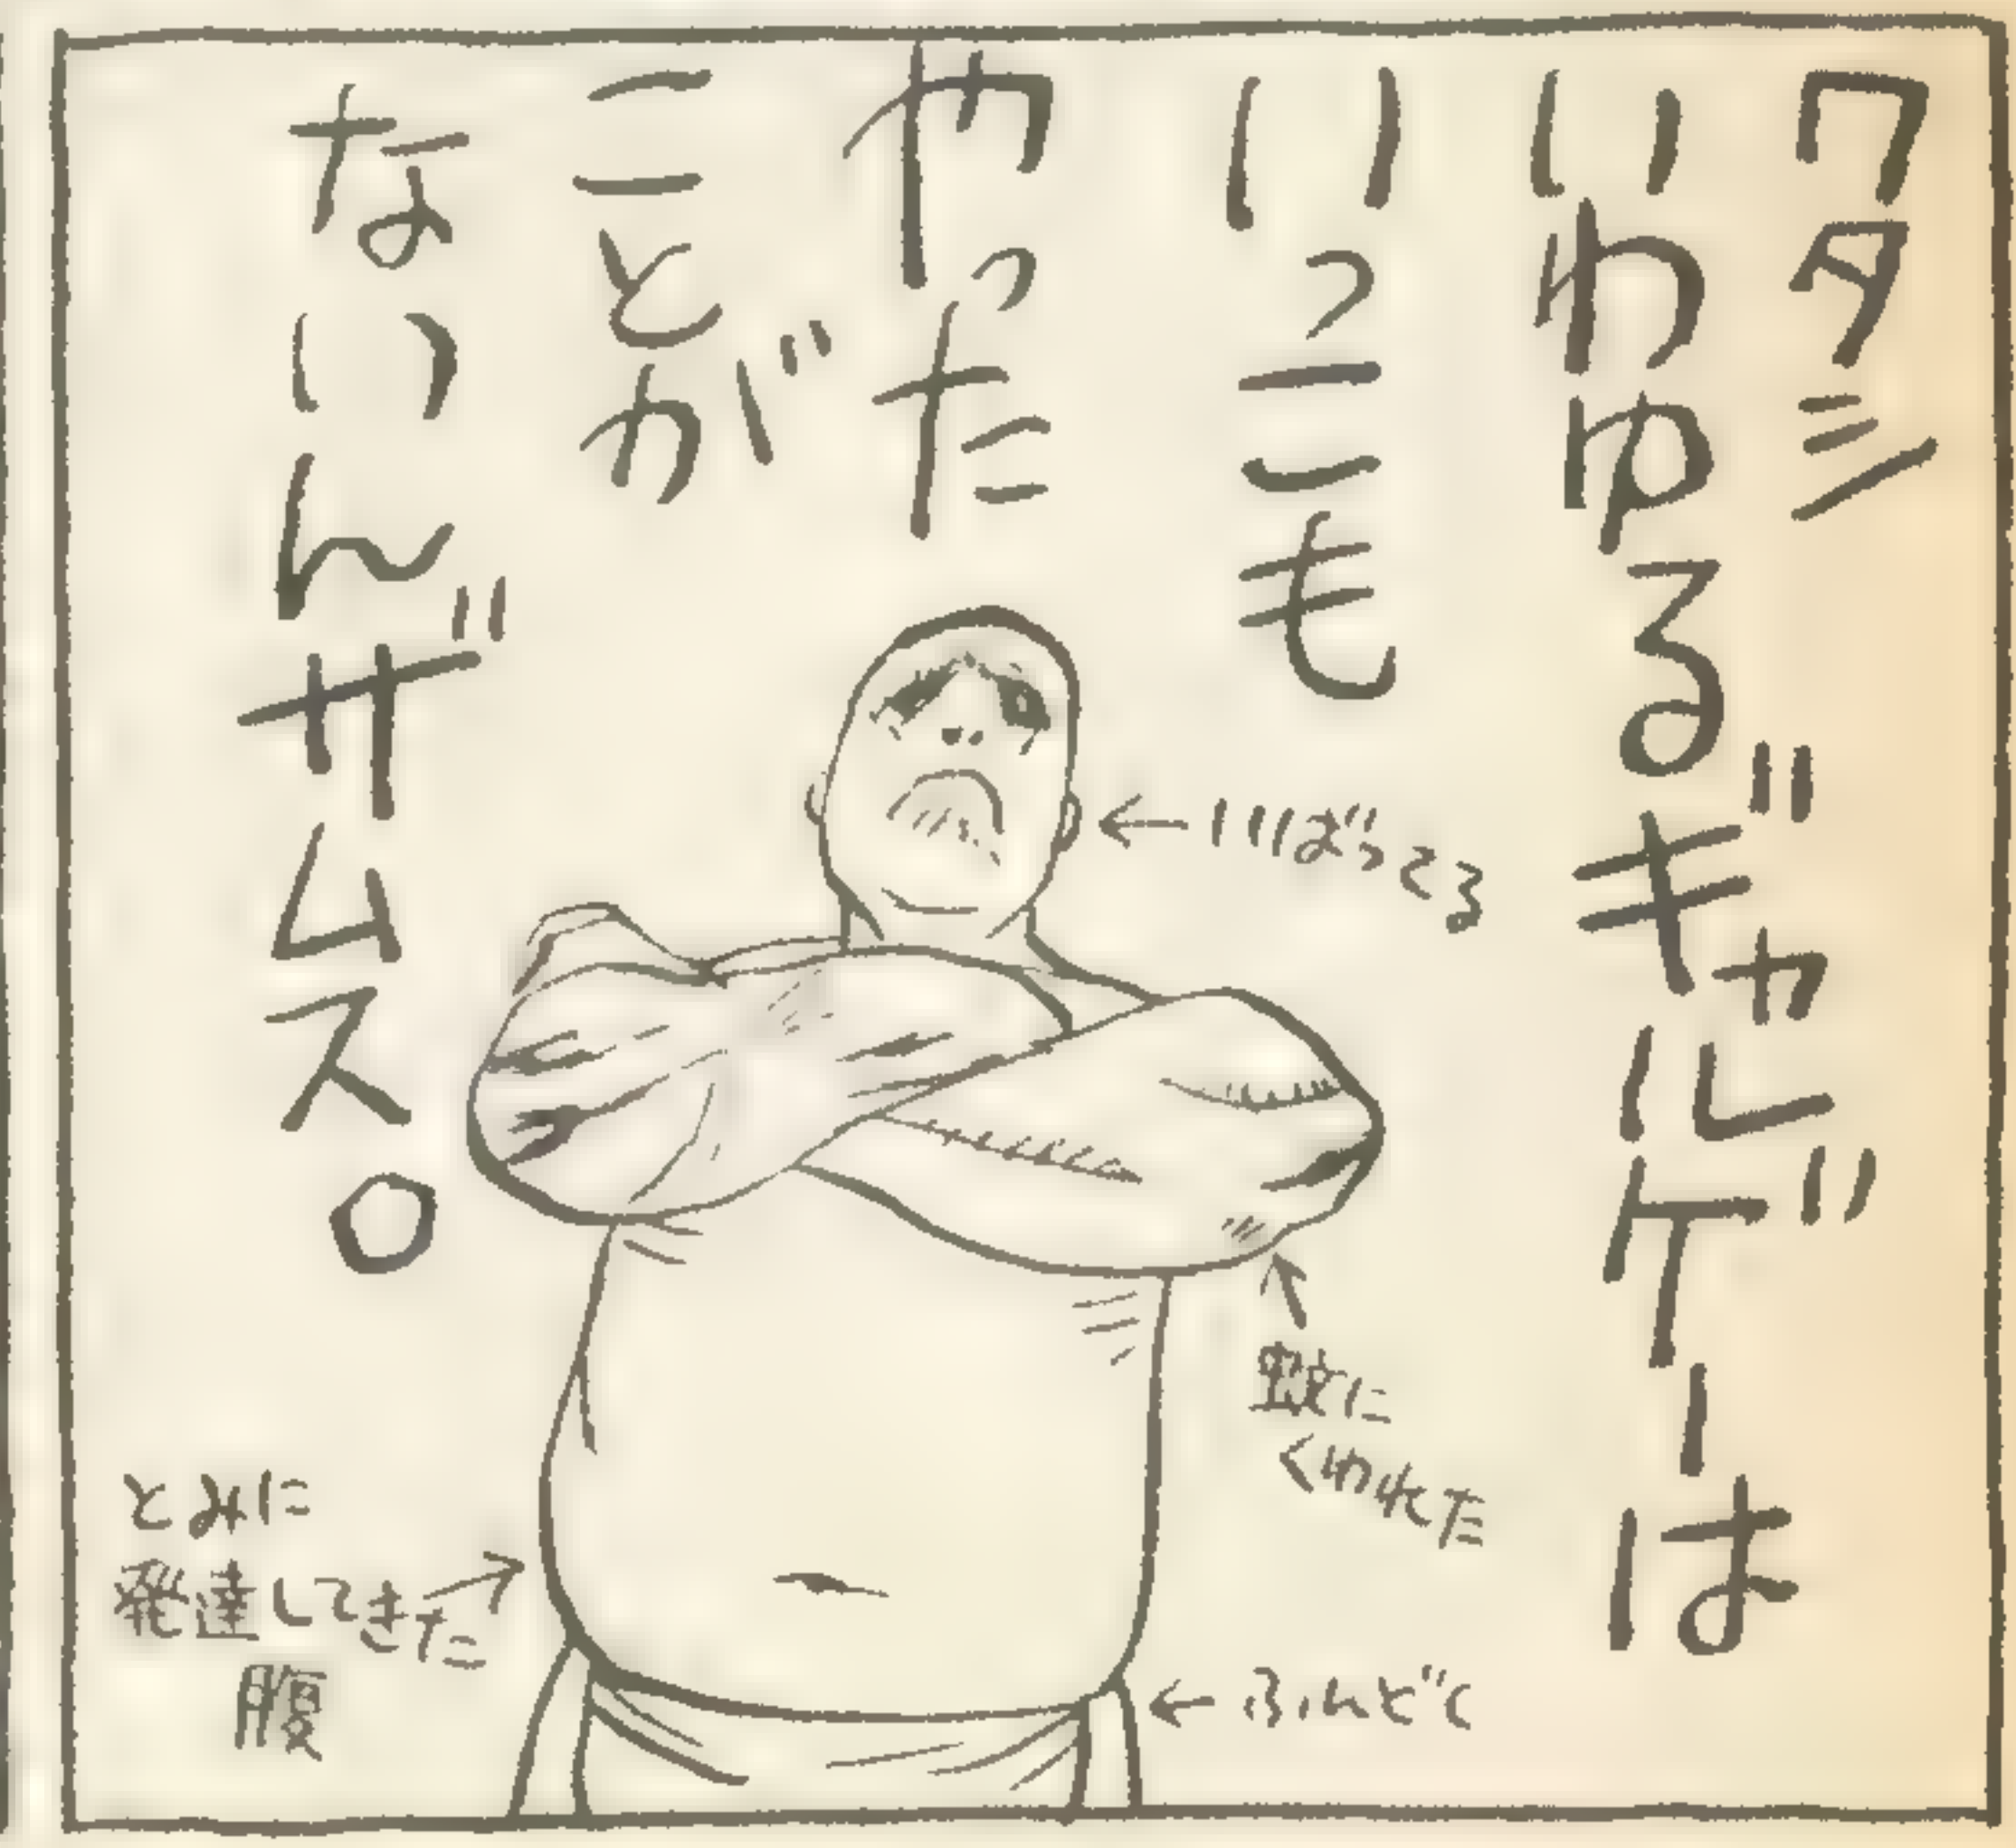 ワタシ
いわゆるギャルゲーは
いっこも
やった
ことが
ないんザムス。
←いばってる
蚊に
くわれた
とみに
発達してきた
腹
←ふんどし